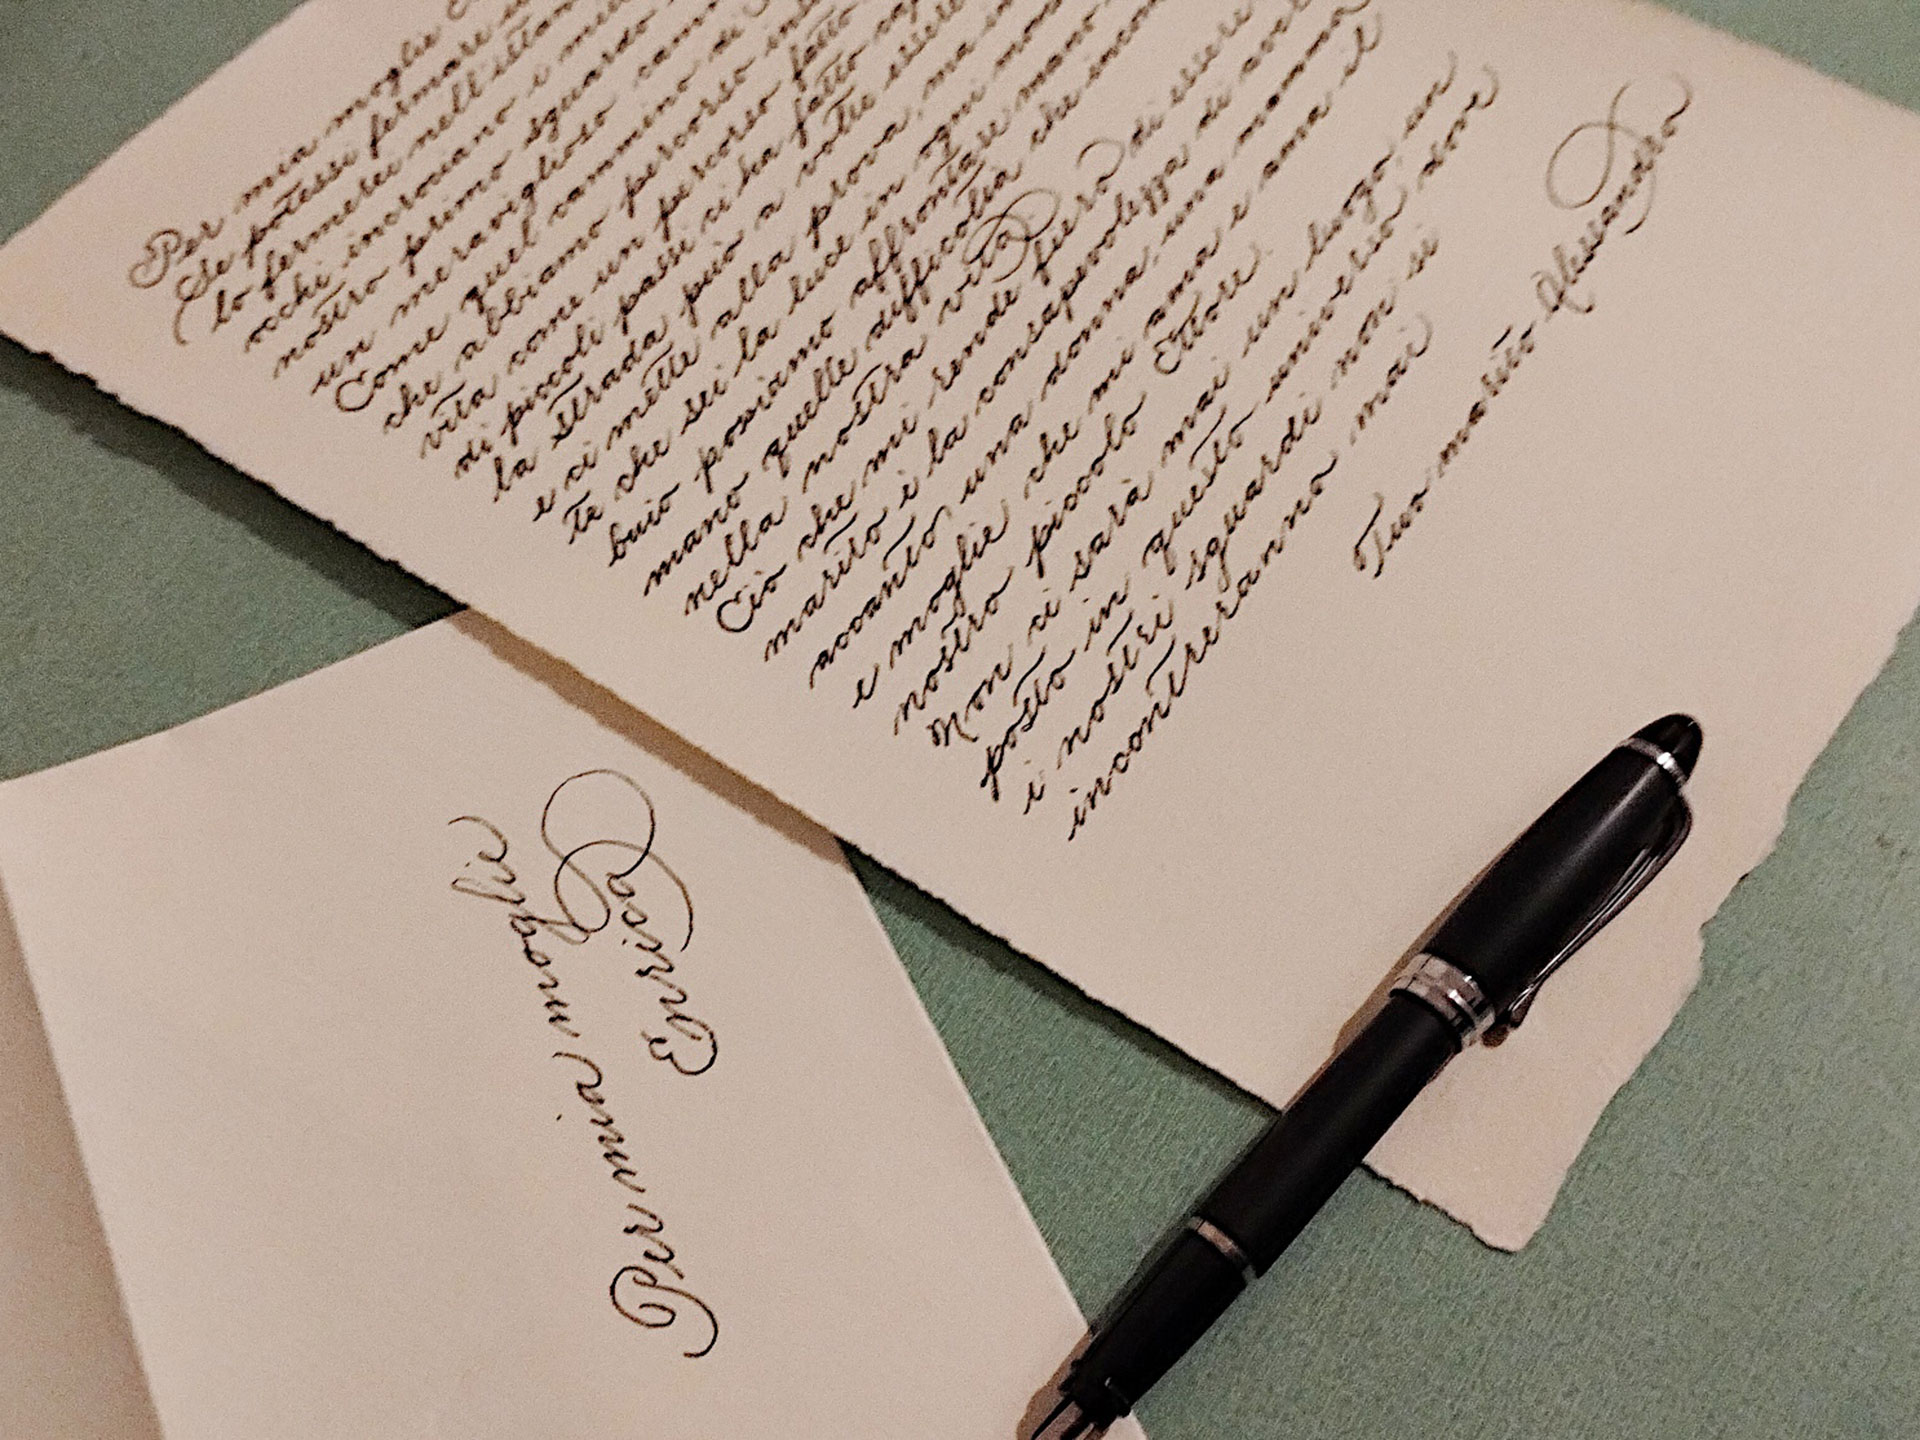 Per mia moglie
Se potessi fermare
lo fermerei nell'istan
occhi incrociano i miei
nostro primo sguardo
un meraviglioso camm
Come quel cammino di
che abbiamo percorso in
vita come un percorso fatto
di piccoli passi ci ha fatto cap
la strada può a volte essere
e ci mette alla prova, ma in
te che sei la luce in ogni mom
buio possiamo affrontare mano
mano quelle difficoltà che incon
nella nostra vita.
Ciò che mi rende fiero di essere
marito è la consapevolezza di aver
accanto, una donna, una mamma
e moglie che mi ama e ama il
nostro piccolo Ettore.
Non ci sarà mai un luogo, un
posto in questo universo dove
i nostri sguardi non si
incontreranno mai
Tuo marito Alessandro
Per mia moglie
Erica